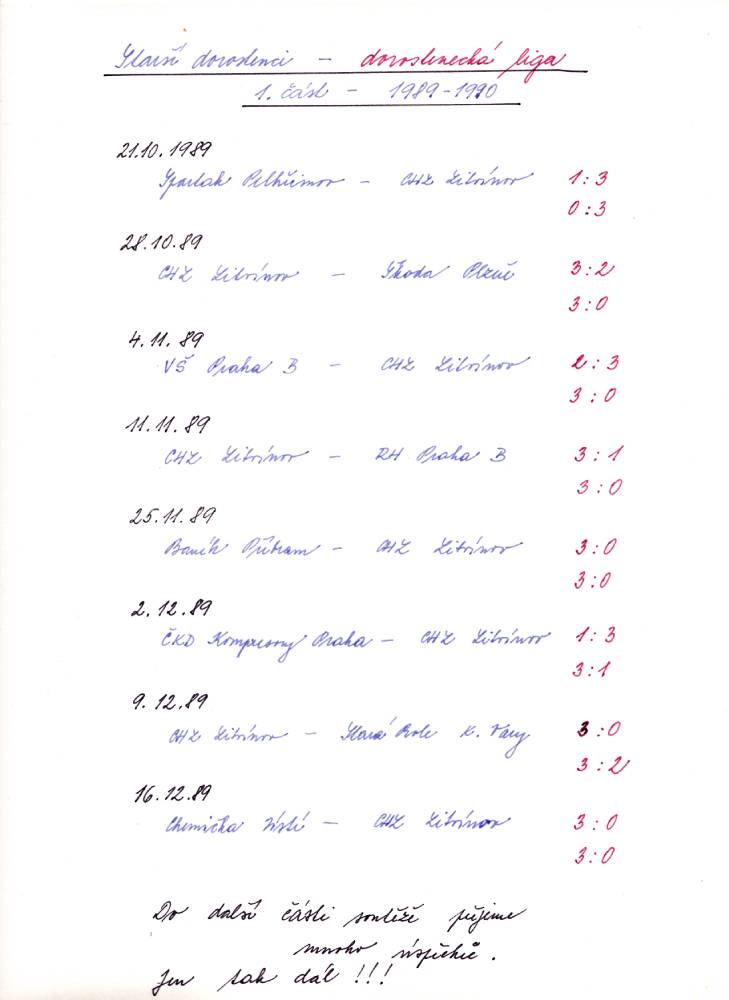 Starší dorostenci – dorostenecká liga
1. část – 1989-1990
21.10.1989
Spartak Pelhřimov – CHZ Litvínov 1:3
0:3
28.10.89
CHZ Litvínov – Škoda Plzeň 3:2
3:0
4.11.89
VŠ Praha B – CHZ Litvínov 2:3
3:0
11.11.89
CHZ Litvínov – RH Praha B 3:1
3:0
25.11.89
Baník Příbram – CHZ Litvínov 3:0
3:0
2.12.89
ČKD Kompresory Praha – CHZ Litvínov 1:3
3:1
9.12.89
CHZ Litvínov – Stará Role K. Vary 3:0
3:2
16.12.89
Chemička Ústí – CHZ Litvínov 3:0
3:0
Do další části soutěže přejeme
mnoho úspěchů.
Jen tak dál !!!